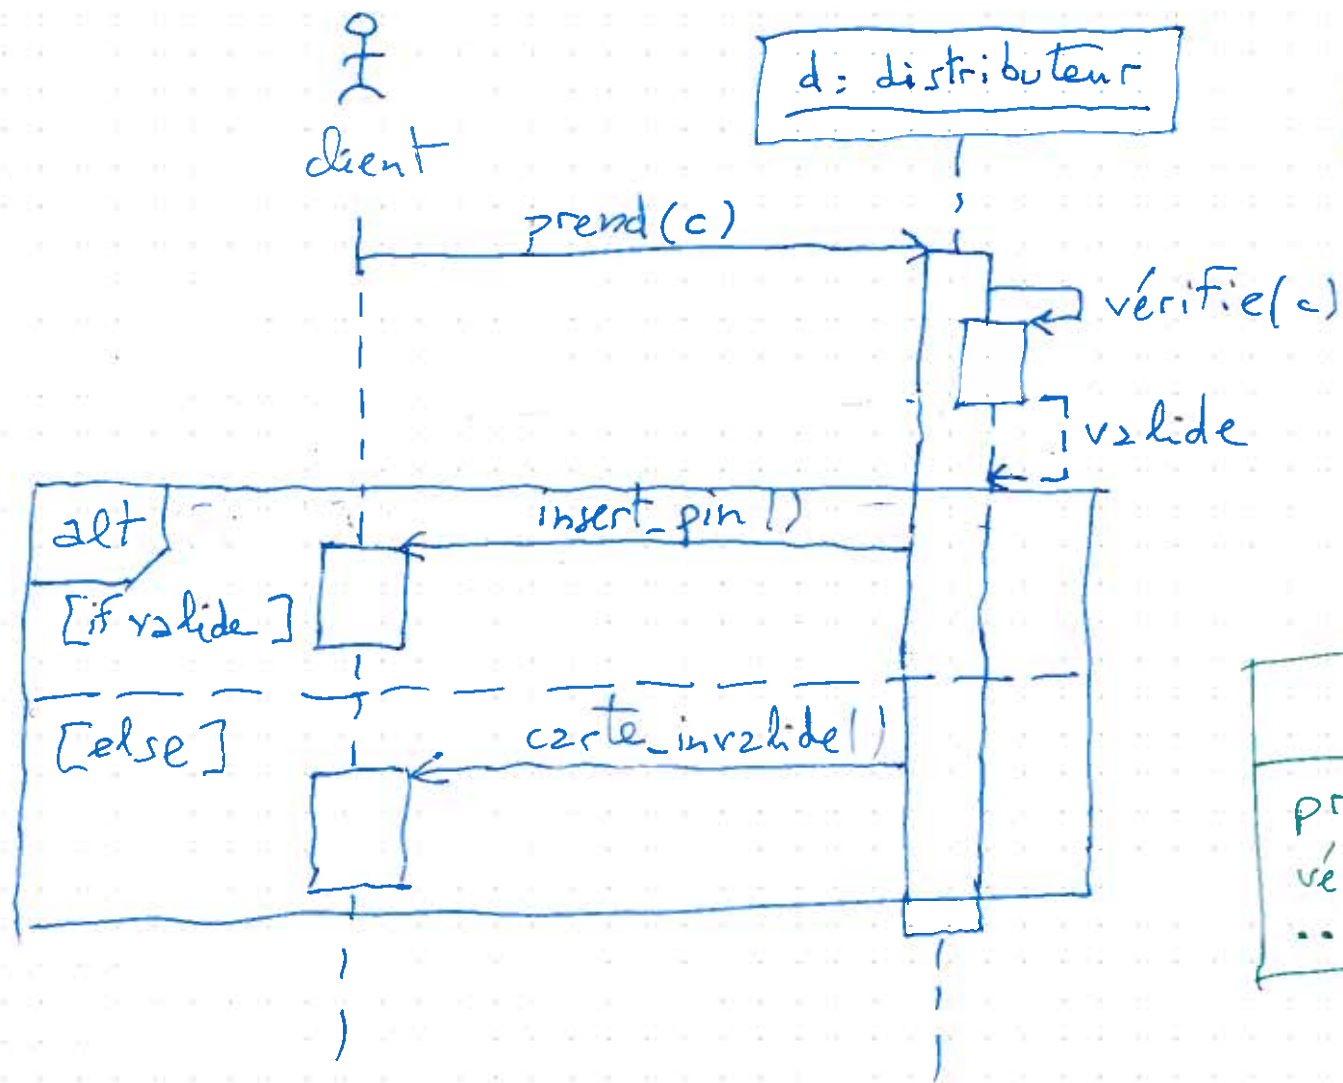 client
d: distributeur
prend(c)
vérifie(c)
valide
alt
insert_pin()
[if valide]
[else]
carte_invalide()
pr
vé
..